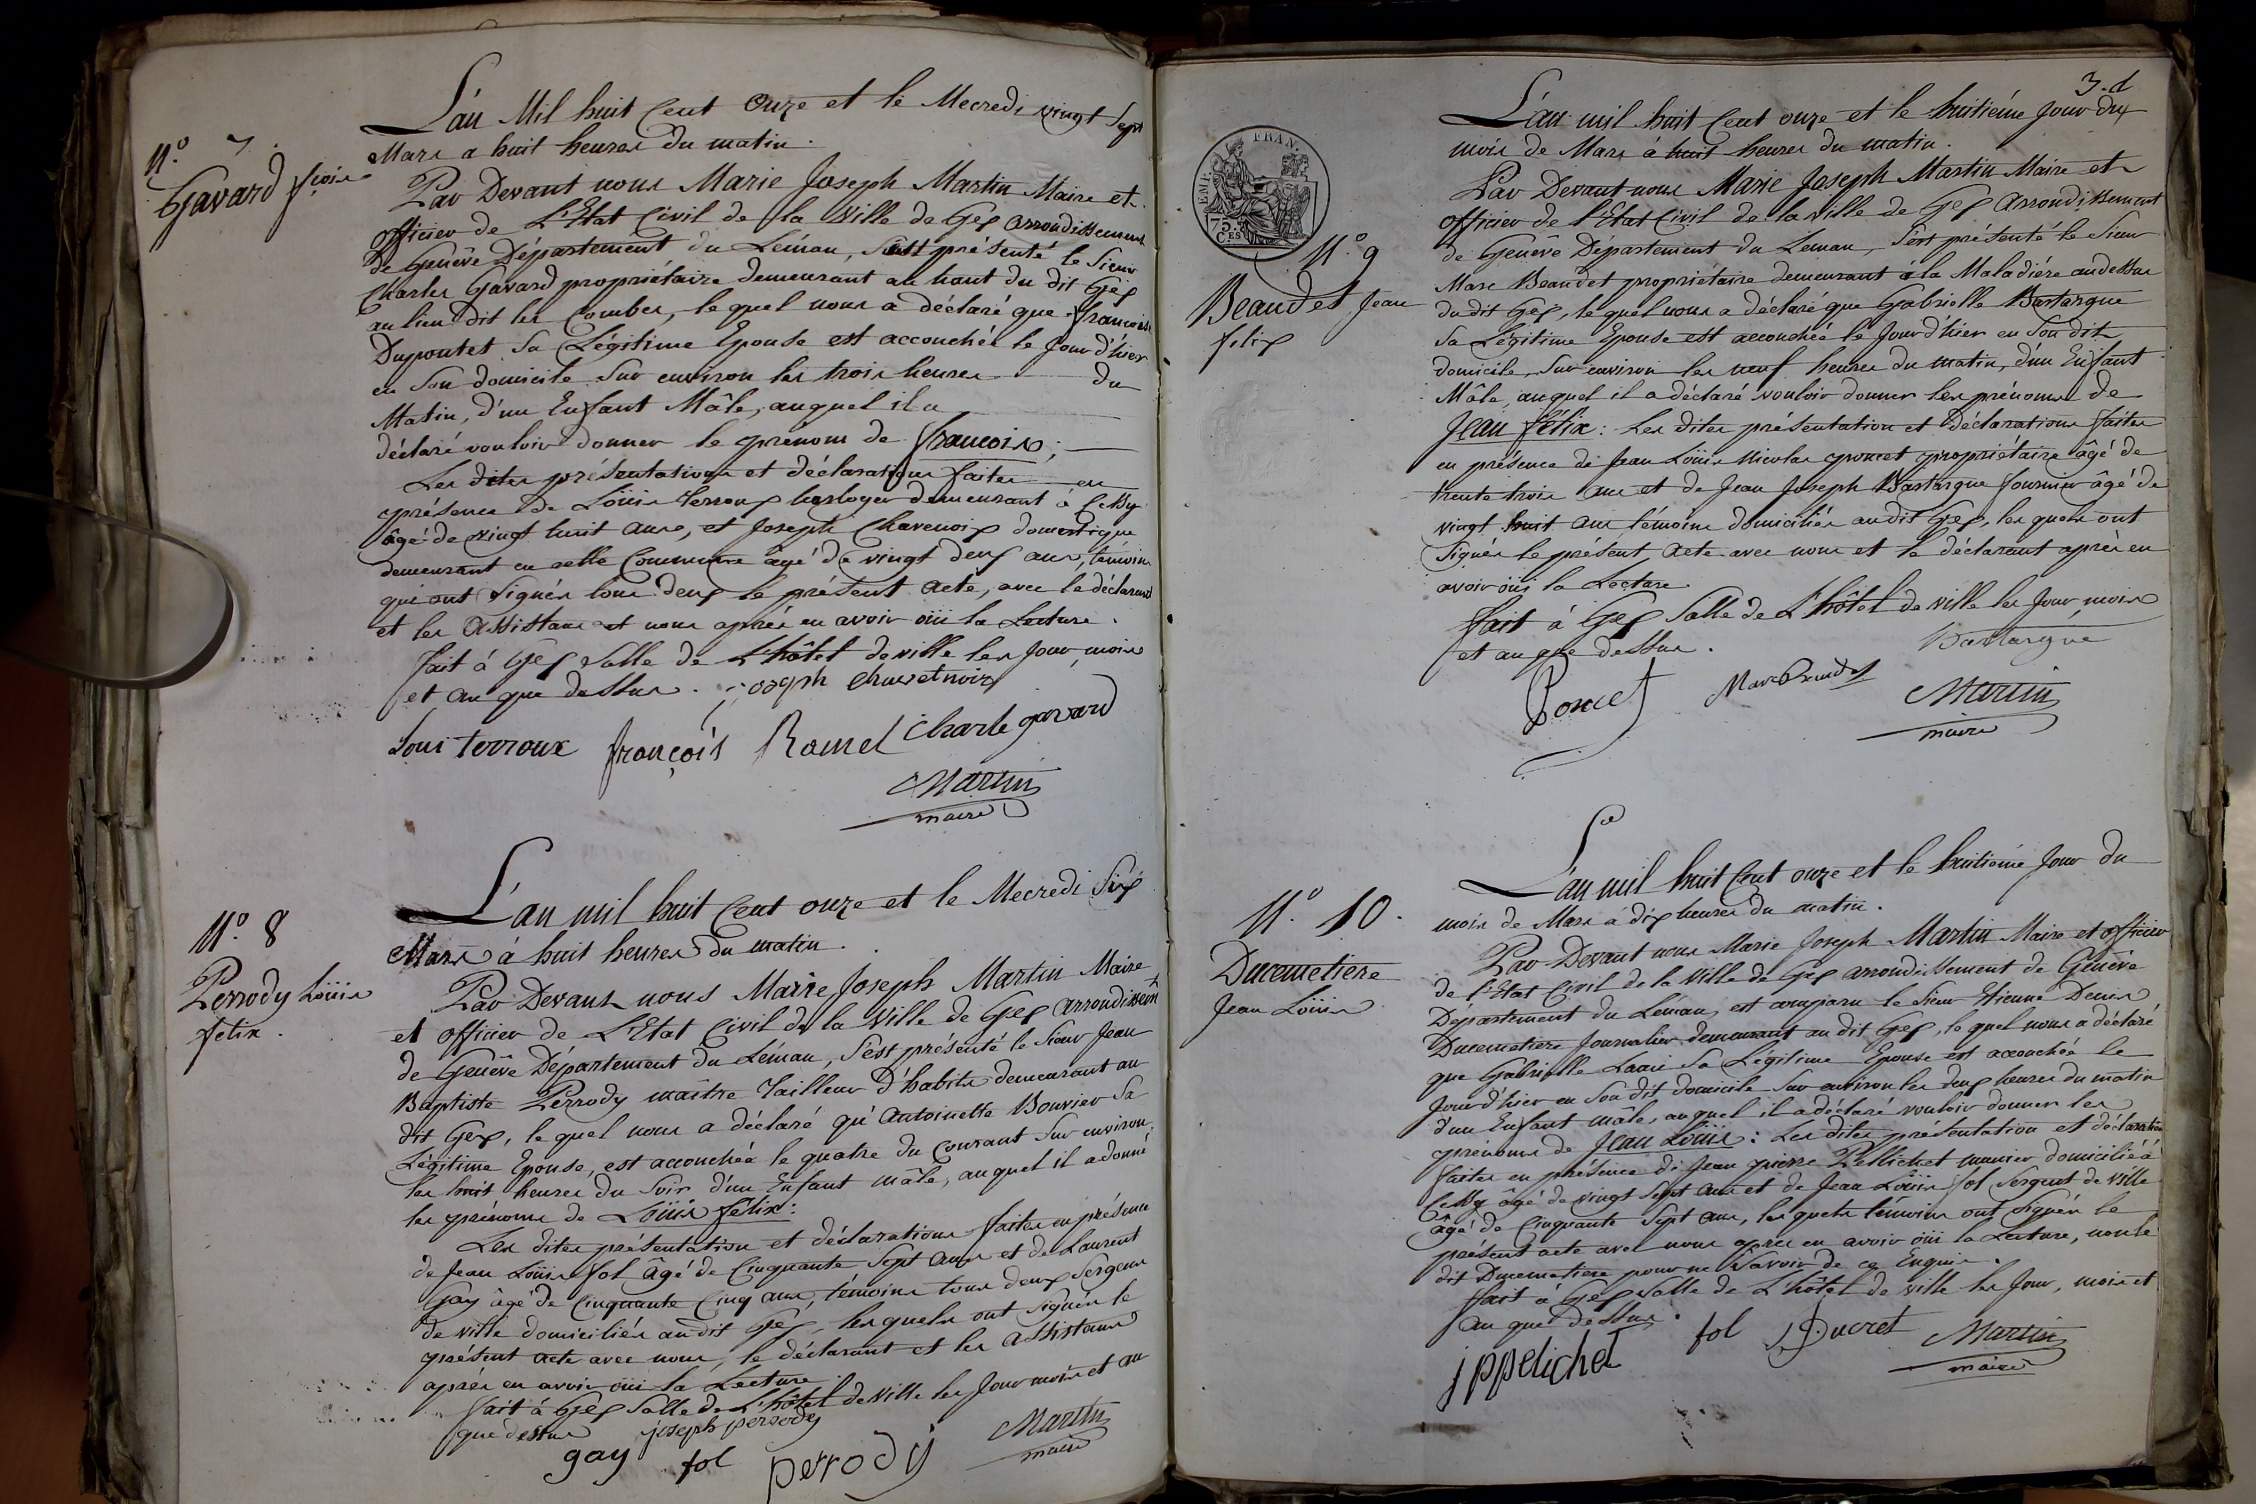 L'an Mil huit Cent Onze et le Mecredi vingt Sept
Mars a huit heures du matin.
N.º 7.
Gavard fçois
Par Devant nous Marie Joseph Martin Maire et
officier de L'Etat Civil de la Ville de Gex arrondissement
de Genêve Département du Leman, s'est présenté le Sieur
Charles Gavard propriétaire demeurant au haut du dit Gex
au lieu dit les Combes, le quel nous a déclaré que francoise
Dupontet Sa Légitime Epouse est accouchée le jour d'hier
en Son domicile Sur environ les trois heures du
Matin, d'un Enfant Mâle, auquel il a
déclaré vouloir donner le prénom de francois;
Les dites présentations et déclarations faites en
présence de Loüis Terroux horloger demeurant à Cessy
âgé de vingt huit ans, et Joseph Chavenoix domestique
demeurant en cette Commune âgé de vingt deux ans, témoins
qui ont Signés tous deux le présent acte, avec le déclarant
et les Assistans et nous après en avoir oüi la Lecture.
fait à Gex Salle de L'hôtel de ville les jour, moins
et an que dessus. joseph chavetnoix
Loui terroux françois Ramel Charle gavard
Martin
maire
L'an mil huit Cent onze et le Mecredi Six
Mars à huit heures du matin.
N.º 8
Perrody Loüis
felix.
Par Devant nous Marie Joseph Martin Maire
et officier de L'Etat Civil de la Ville de Gex arrondissemt
de Genêve Département du Léman, s'est présenté le Sieur Jean
Baptiste Perrody maître Tailleur d'habits demeurant au
dit Gex, le quel nous a déclaré qu'antoinette Bouvier Sa
Légitime Epouse, est accouchée le quatre du Courant Sur environ
les huit heures du Soir d'un Enfant mâle, auquel il a donné
les prénoms de Loüis félix:
Les dites présentation et déclarations faites en présence
de Jean Loüis fol âgé de Cinquante Sept ans et de Laurent
Gay âgé de Cinquante Cinq ans, témoins tous deux Sergens
de ville domiciliés au dit Gex, les quels ont Signés le
présent acte avec nous, le déclarant et les assistans
après en avoir oüi la Lecture.
fait à Gex Salle de L'hôtel de ville les jour moins et an
que dessus joseph perrody
gay fol perrody
Martin
maire
3. d
EMP. FRAN.
75.
CES
L'an mil huit Cent onze et le huitième Jour du
mois de Mars à huit heures du matin.
N.º 9
Beaudet Jean
felix
Par Devant nous Marie Joseph Martin Maire et
officier de l'Etat Civil de la ville de Gex Arrondissement
de Genêve Département du Leman, s'est présenté le Sieur
Marc Beaudet propriétaire demeurant à la Maladière audessus
du dit Gex, le quel nous a déclaré que Gabrielle Bastargue
Sa Légitime Epouse est accouchée le Jour d'hier en Son dit
domicile, Sur environ les neuf heures du matin, d'un Enfant
Mâle, auquel il a déclaré vouloir donner les prénoms de
Jean félix: Les dites présentation et déclarations faites
en présence de Jean Loüis Nicolas poncet propriétaire âgé de
trente trois ans et de Jean Joseph Bastargue fournier âgé de
vingt huit ans témoins domiciliés au dit Gex, les quels ont
Signés le présent Acte avec nous et le déclarant après en
avoir oüi la Lecture
fait à Gex Salle de L'hôtel de ville les Jour, mois
et an que dessus. Bastargue
Poncet Marc Beaudet Martin
maire
L'an mil huit Cent onze et le huitième Jour du
mois de Mars à dix heures du matin.
N.º 10.
Ducemetiere
Jean Loüis
Par Devant nous Marie Joseph Martin Maire et officier
de l'Etat Civil de la Ville de Gex arrondissement de Genêve
Département du Léman, est comparu le Sieur Etienne Denis
Ducemetiere Journalier demeurant au dit Gex, le quel nous a déclaré
que Gabrielle Sa Légitime Epouse est accouchée le
Jour d'hier en Son dit domicile Sur environ les deux heures du matin
d'un Enfant mâle, auquel il a déclaré vouloir donner les
prénoms de Jean Loüis: Les dites présentation et déclaration
faites en présence de Jean pierre Pellichet domicilié à
Cessy âgé de vingt Sept ans et de Jean Loüis fol Sergent de ville
âgé de Cinquante Sept ans, les quels témoins ont Signés le
présent acte avec nous après en avoir oüi la Lecture, non le
dit Ducemetiere pour ne Savoir de ce Enquis.
fait à Gex Salle de L'hôtel de ville les Jour, mois et
an que dessus.
jppelichet fol Ducret Martin
maire